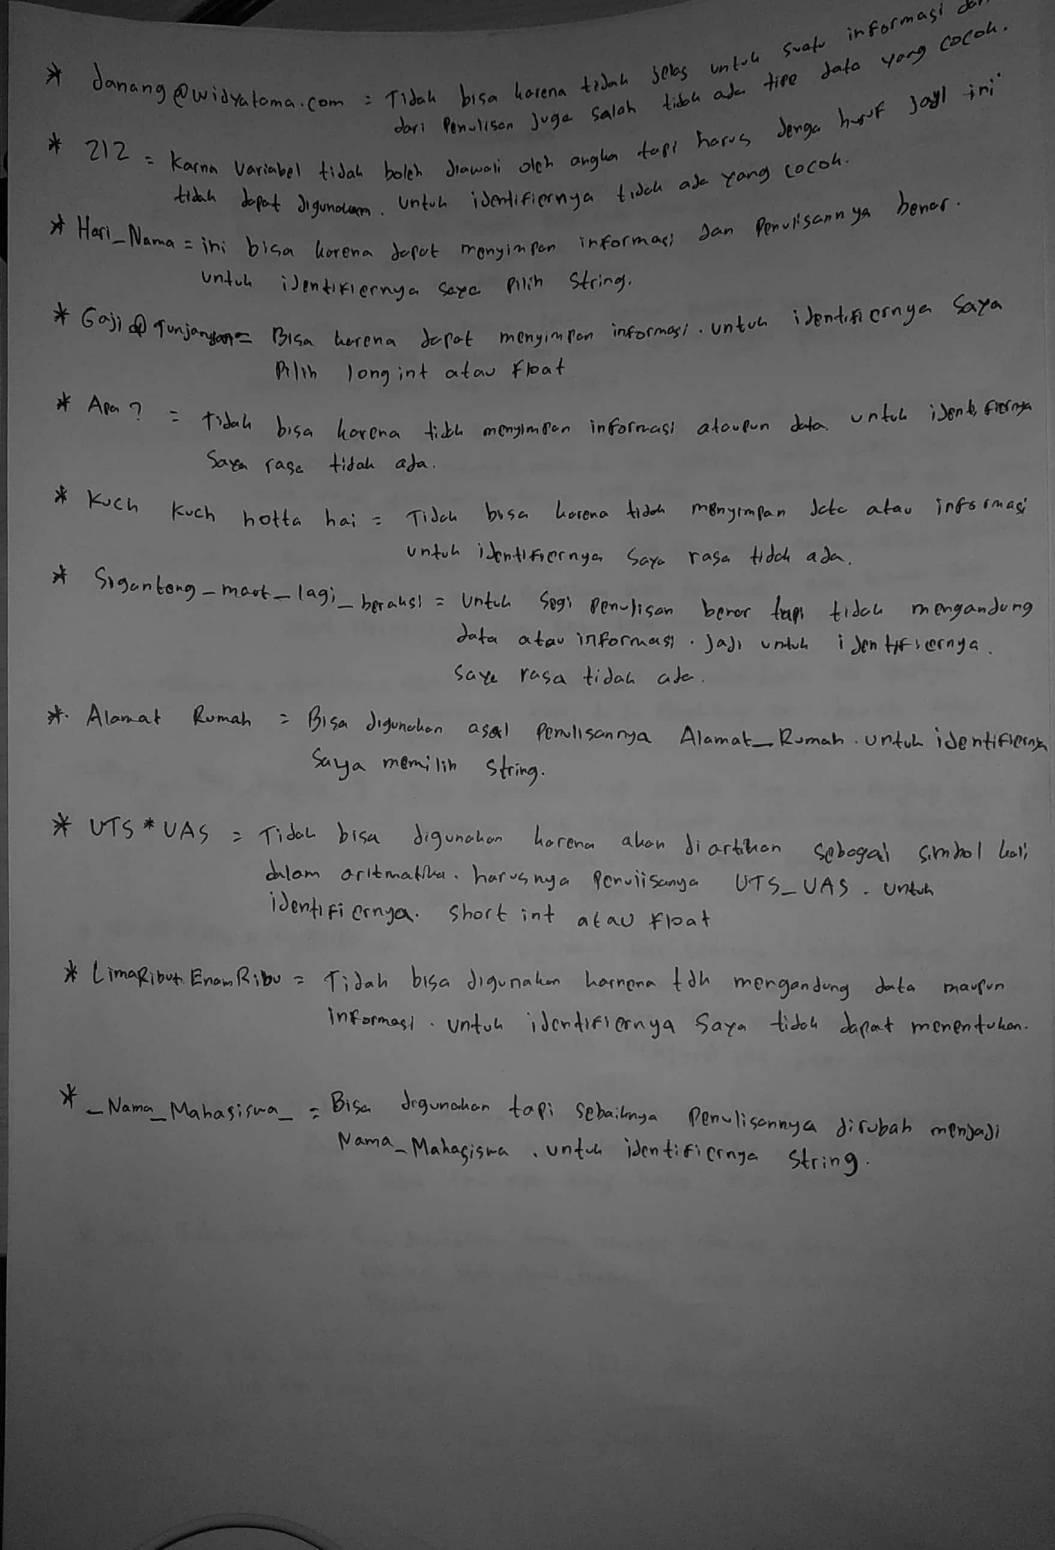 * danang@widyatama.com = Tidak bisa karena tidak jelas untuk suatu informasi dan
dari Penulisan juga salah tidak ada tipe data yang cocok.
* 212 = Karna Variabel tidak boleh diawali oleh angka tapi harus denga huruf jadi ini
tidak dapat digunakan. Untuk identifiernya tidak ada yang cocok.
* Hari_Nama = ini bisa karena dapat menyimpan informasi dan Penulisannya benar.
untuk identifiernya saya Pilih String.
* Gaji @ Tunjangan = Bisa karena dapat menyimpan informasi. untuk identifiernya saya
Pilih long int atau float
* Apa ? = tidak bisa karena tidak menyimpan informasi ataupun data untuk identifiernya
Saya rasa tidak ada.
* Kuch Kuch hotta hai = Tidak bisa karena tidak menyimpan data atau informasi
untuk identifiernya Saya rasa tidak ada.
* Siganteng_maot_lagi_beraksi = Untuk Segi Penulisan benar tapi tidak mengandung
data atau informasi. Jadi untuk identifiernya.
Saya rasa tidak ada.
*. Alamat Rumah = Bisa digunakan asal Penulisannya Alamat_Rumah. untuk identifiernya
Saya memilih String.
* UTS * UAS = Tidak bisa digunakan karena akan diartikan sebagai simbol kali
dalam aritmatika. harusnya Penulisanya UTS_UAS. Untuk
identifiernya. Short int atau float
* LimaRibu EnamRibu = Tidak bisa digunakan karnena tdk mengandung data maupun
informasi. untuk identifiernya Saya tidak dapat menentukan.
* _Nama_Mahasiswa_ = Bisa digunakan tapi Sebaiknya Penulisannya dirubah menjadi
Nama_Mahasiswa. untuk identifiernya String.